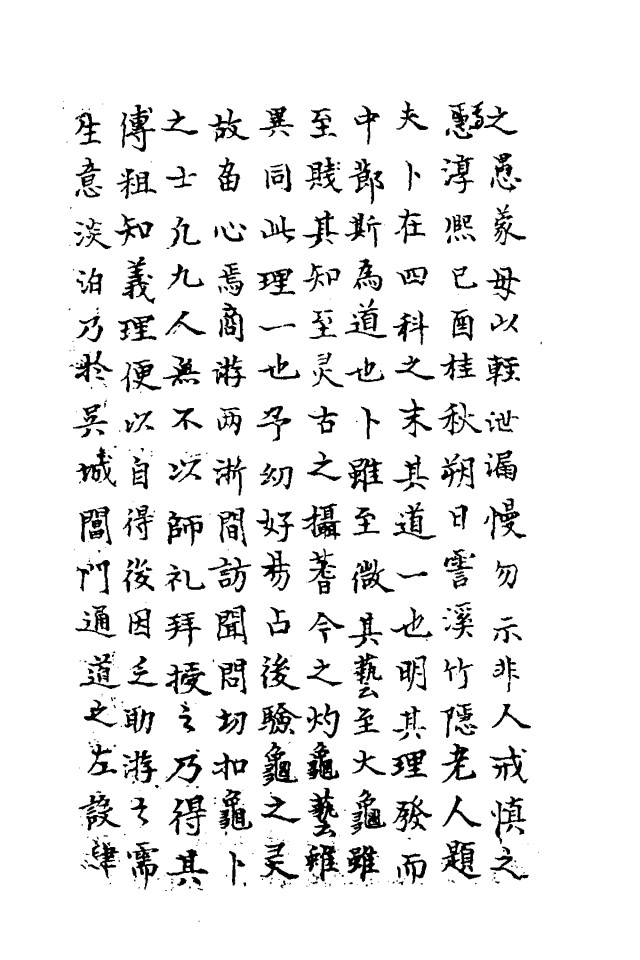 之愚蒙毋以輕泄漏慢勿示非人戒慎之
淳熙己酉桂秋朔日霅溪竹隱老人題
夫卜在四科之末其道一也明其理發而
中鄙斯為道也卜雖至微其藝至大龜雖
至賤其知至灵古之揲蓍今之灼龜藝雖
異同此理一也予幼好易占後驗龜之灵
故畱心焉商游两浙間訪聞問切扣龜卜
之士凢九人無不以師礼拜授之乃得其
傳粗知義理便以自得後因乏助游之需
生意淡泊乃於吳城閶門通道之左設肆